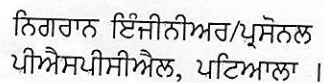 ਨਿਗਰਾਨ ਇੰਜੀਨੀਅਰ/ਪ੍ਰਸੋਨਲ
ਪੀਐਸਪੀਸੀਐਲ, ਪਟਿਆਲਾ ।